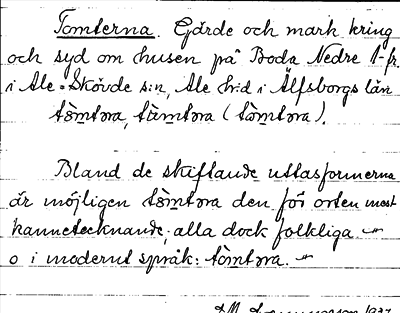 Tomterna. Gärde och mark kring
och syd om husen på Boda Nedre 1-fr.
i Ale-Skövde s:n, Ale h:d i Älfsborgs län
tömtora, tämtora (tömtora).
Bland de skiftande uttasformerna
är möjligen tömtora den för orten mest
kännetecknande, alla dock folkliga
o i modernt språk: tömtora.
1937